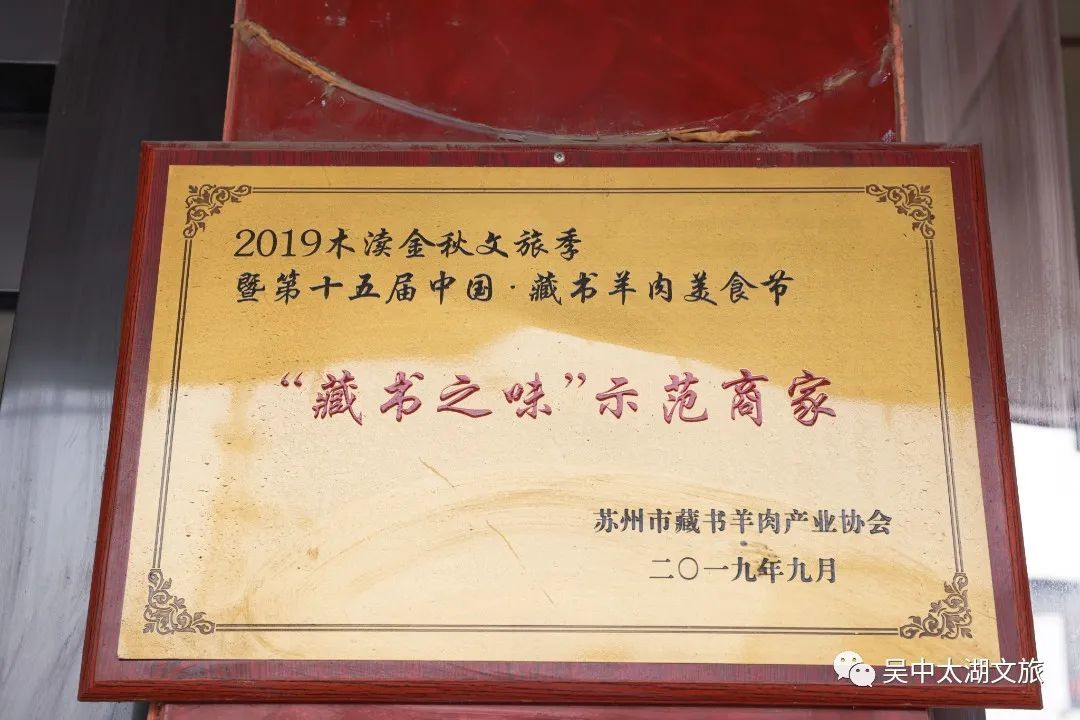 2019木渎金秋文旅季
暨第十五届中国·藏书羊肉美食节
“藏书之味”示范商家
苏州市藏书羊肉产业协会
二〇一九年九月
吴中太湖文旅